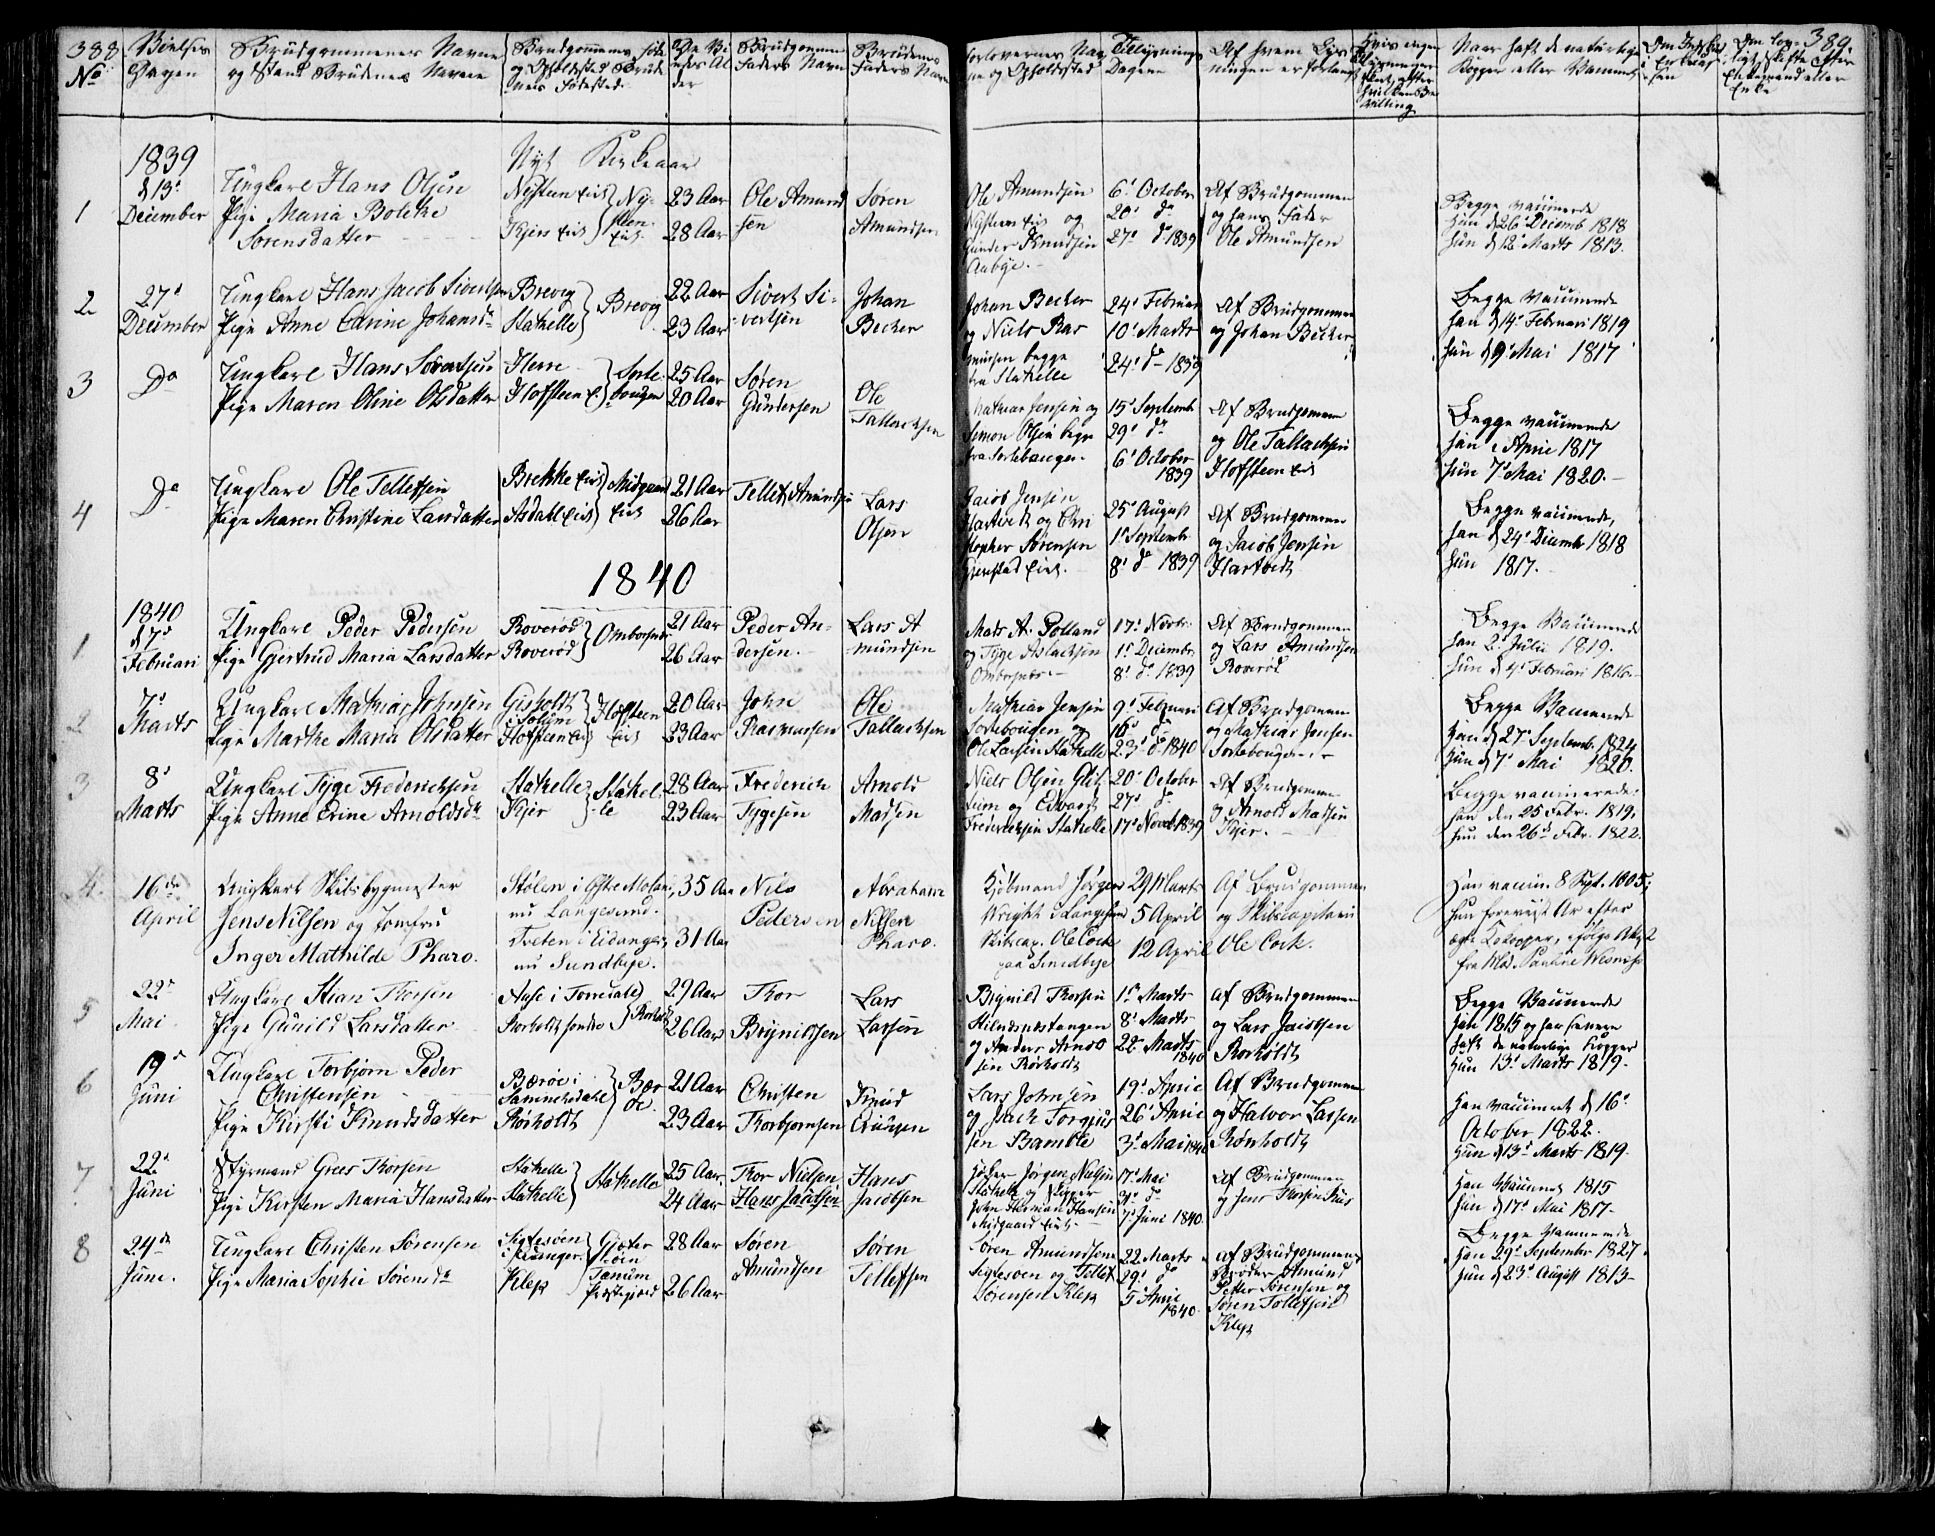 388
No
Vielses Dagen
Brudgommenes Navne og Stand Brudenes Navne
Brudgommens føde og Opholdssted Brudenes Fødested
Brudgommens Faders Navn
Brudenes Faders Navn
Forlovernes Navne og Opholdssted
Tillysnings Dagene
Af hvem Lysningen er forlangt
Naar haft de naturlige Kopper eller Vaccinerede
389.
1839
Nyt Kirkeaar
1
d 13de December
Ungkarl Hans Olsen
Pige Maria Bolette
Sørensdatter
Nysteen Eie
Kjers Eie
23 Aar
28 Aar
Ole Amundsen
Søren Amundsen
Ole Amundsen
Nysteen Eie og
Gunder Knudsen
Aabye.
6' October
20' do
27' do 1839
Af Brudgommen
og hans Fader
Ole Amundsen
Begge vaccinerede
Han d 26' Decemb 1818
Hun d 12' Marts 1813.
2
27'
December
Ungkarl Hans Jacob Sivertsen
Pige Anne Carine Johansdr
Brevig
Stathelle
Brevig
22 Aar
23 Aar
Sivert Sivertsen
Johan
Becker
Johan Becker
og Niels Rasmussen begge
fra Stathelle
24' Februar
10' Marts
24' do 1839
Af Brudgommen
og Johan Becker
Begge vaccinerede
han d 14' Februari 1819
hun d 9' Mai 1817
3
Do
Ungkarl Hans Sørensen
Pige Maren Oline Olsdatter
Herre
Hofsteen E.
25 Aar
20 Aar
Søren
Gundersen
Ole
Tallachsen
Mathias Jensen og
Simon Olsen begge
fra Sortebaugen
15' Septemb
29' do
6' October
1839
Af Brudgommen
og Ole Tallachsen
Hofsteen Eie
Begge vaccinerede
han i April 1817
hun 7' Mai 1820.
4
Do
Ungkarl Ole Tellefsen
Pige Maren Christine Larsdatter
Brekke Eie
Asdahl Eie
Midgaard Eie
21 Aar
26 Aar
Tellef Amundsen
Lars
Olsen
Jacob Jensen
Hartvedt og Christopher Sørensen
25' August
1' Septembr
8' do 1839
Af Brudgommen
og Jacob Jensen
Hartvedt
Begge vaccinerede,
han d 24' Decemb 1818
hun 1817.
1840
1
1840
d 7'
Februari
Ungkarl Peder Pedersen
Pige Gjertrud Maria Larsdatter
Roverød
Roverød
Omborsnes
21 Aar
26 Aar
Peder Andersen.
Lars Amundsen
Mads A. Polland
og Tyge Aslachsen
Ombornes
17' Novbr.
1' Decembr
8' do 1839
Af Brudgommen
og Lars Amundsen
Roverød
Begge Vaccinerede
han 2' Julii 1819.
hun d 4' Februari 1816.
2
7'
Marts
Ungkarl Mathias Johnsen
Pige Marthe Maria Olsdatter
Gisholdt
i Solum
Hofsteen Eie
Hofsteen
Eie
20 Aar
23 Aar
John
Rasmussen
Ole
Tallachsen
Mathias Jensen
Sortebougen og
Ole Larsen Stathelle
9' Februari
16' do
23' do 1840
Af Brudgommen
og Mathias Jensen
Sortebougen
Begge Vaccinerede
Han d 27' Septemb. 1824
Hun d 7' Mai 1820.
3
8'
Marts
Ungkarl Tyge Frederichsen
Pige Anne Trine Arnoldsdr
Stathelle
Kjer
Stathelle
28 Aar
23 Aar
Frederich
Tygesen
Arnold
Madsen
Niels Olsen
og Edvard
Frederichsen Stathelle
20' October
27' do
17' Novb 1839
Af Brudgommen
og Arnold Madsen
Kjer.
Begge vaccinerede:
han den 25 Febr. 1819.
hun den 26' Febr. 1822.
4.
16de
April
Ungkarl Skibsbygmester
Jens Nilsen og Jomfru
Inger Mathilde Pharo.
Stølen i Østre Moland,
nu Langesund.
Tveten i Eidanger,
nu Sundbye.
35 Aar
31 Aar
Nils
Pedersen
Abraham
Nilsen
Pharo.
Kjøbmand Jørgen
Wright i Langesund
Skibscap. Ole Cock
paa Smedbye
29 Marts
5 April
12 April
Af Brudgommen
og Skibscapitain
Ole Cock.
Han vaccin. 8 Sept. 1805;
hun foreviist Ar efter
ægte Kokopper, ifølge Attest
fra Mad. Pauline
5
22'
Mai
Ungkarl Stian Thorsen
Pige Gunild Larsdatter
Aase i Torredale
Rorholdt søndre
Rorholdt
29 Aar
26 Aar
Thor
Brynildsen
Lars
Larsen
Brynild Thorsen
og Anders Arnesen Rørholdt
1' Marts
8' Marts
22 Marts
1840
Af Brudgommen
og Lars Jacobsen
Rorholdt
Begge Vaccinerede
han 1815 og har senere
haft de naturlige Kopper
hun 13' Marts 1819.
6
19'
Juni
Ungkarl Torbjørn Peder
Christensen
Pige Kirsti Knudsdatter
Bærøe i
Sannikedale
Rørholdt
Bærøe.
21 Aar
23 Aar
Christen
Thorbjornsen
Knud
Lars Johnsen
og Isach Torgiussen Bamble
19' April
26' April
3' Mai 1840
Af Brudgommen
og Halvor Larsen
Rønholdt
Han vaccineret d 16'
October 1822.
Hun d 13' Marts 1819.
7
22'
Juni
Styrmand Grees Thorsen
Pige Kirsten Maria Hansdatter
Stathelle
Stathelle
Stathelle
25 Aar.
24 Aar
Thor Nielsen
Hans Jacobsen
Hans
Jacobsen
Jørgen Nielsen
Stathelle og Skipper
John Herman Hansen
Midgaard Eie
17' Mai
21' do
7' Juni 1840.
Af Brudgommen
og Jens Thorsen
Han Vaccineret 1815
Hun d 17' Mai 1817
8
24de
Juni.
Ungkarl Christen Sørensen
Pige Maria Sophie Sørensdr
Sigtesøen
i Skienger
Klep
Gjeterøen
Tanum
Prestegield
28 Aar
26 Aar
Søren
Amundsen
Søren
Tellefsen
Søren Amundsen
Sigtesøen og Tellef
Sørensen Klep
22 Marts
29' do
5' April
1840.
Af Brudgommens
Broder Amund
Petter Sørensen og
Søren Tollefsen
Klep
Begge Vaccinerede
Han 29' September 1827.
Hun d 23' August 1813